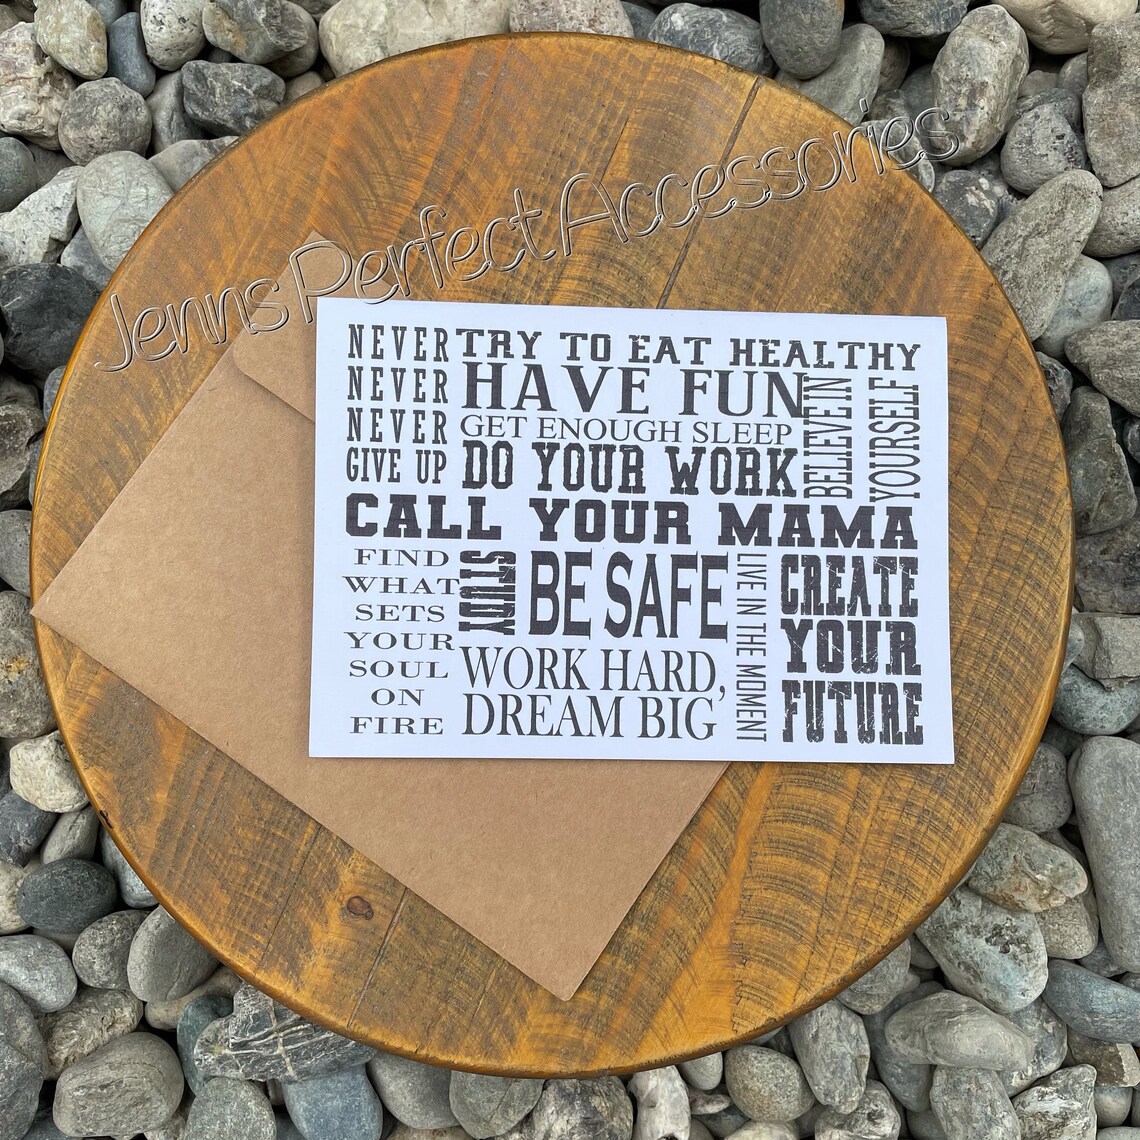 Jenns Perfect Accessories
NEVER
NEVER
NEVER
GIVE UP
TRY TO EAT HEALTHY
HAVE FUN
GET ENOUGH SLEEP
DO YOUR WORK
BELIEVE IN
YOURSELF
CALL YOUR MAMA
FIND
WHAT
SETS
YOUR
SOUL
ON
FIRE
STUDY
BE SAFE
WORK HARD,
DREAM BIG
LIVE IN THE MOMENT
CREATE
YOUR
FUTURE